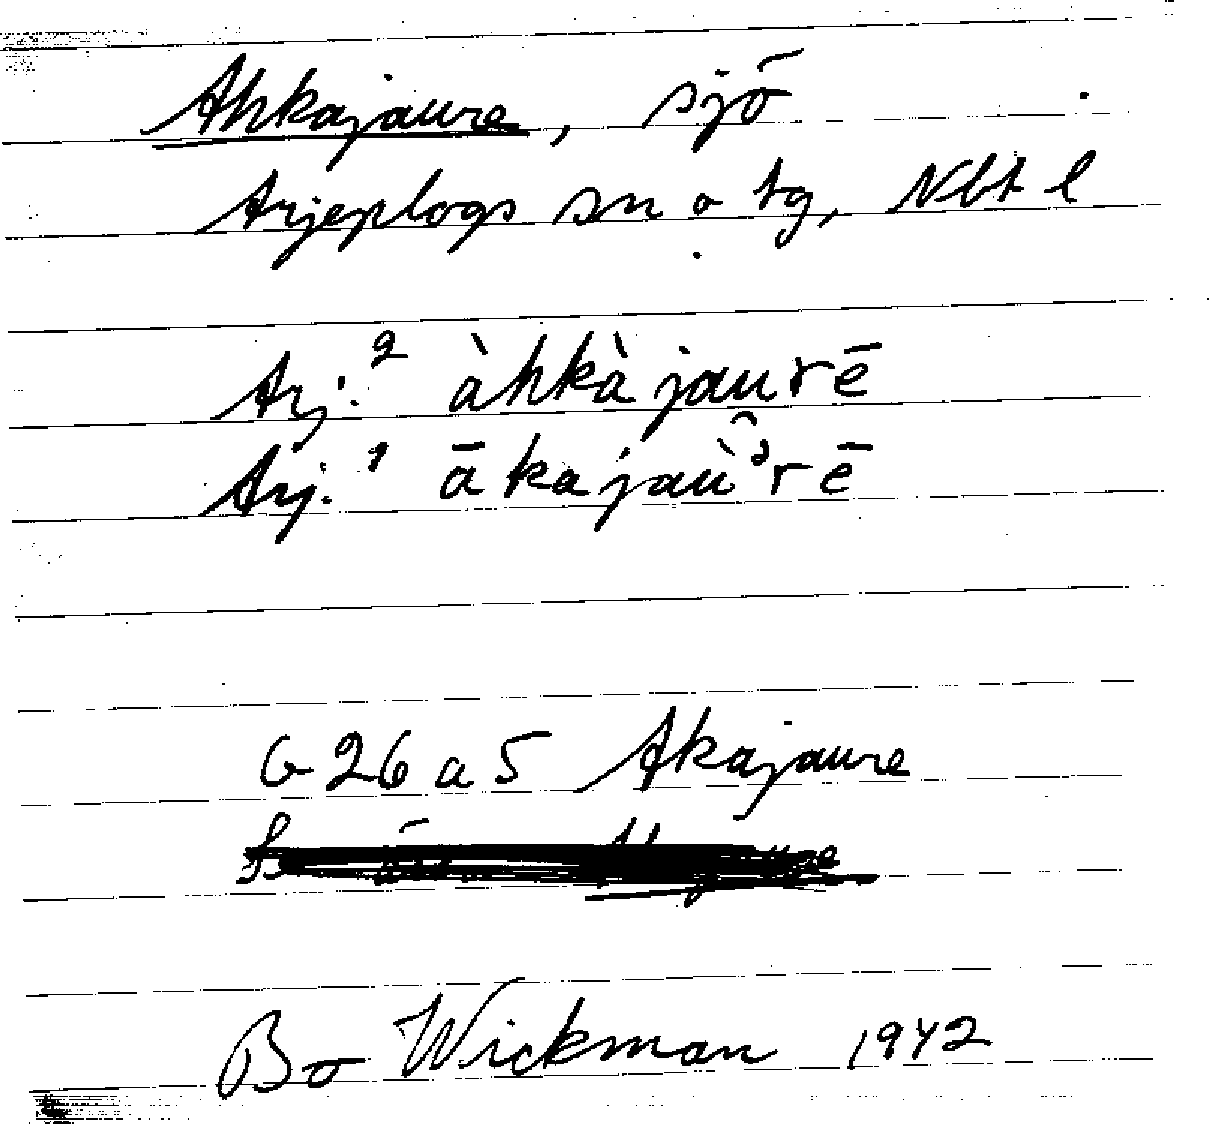 Ahkajaure, sjö
Arjeplogs sn o tg, Nbt l
Arj.² àhkàjaurē
Arj.¹ ākajaùrē
G 26 a 5 Akajaure
Bo Wickman 1942